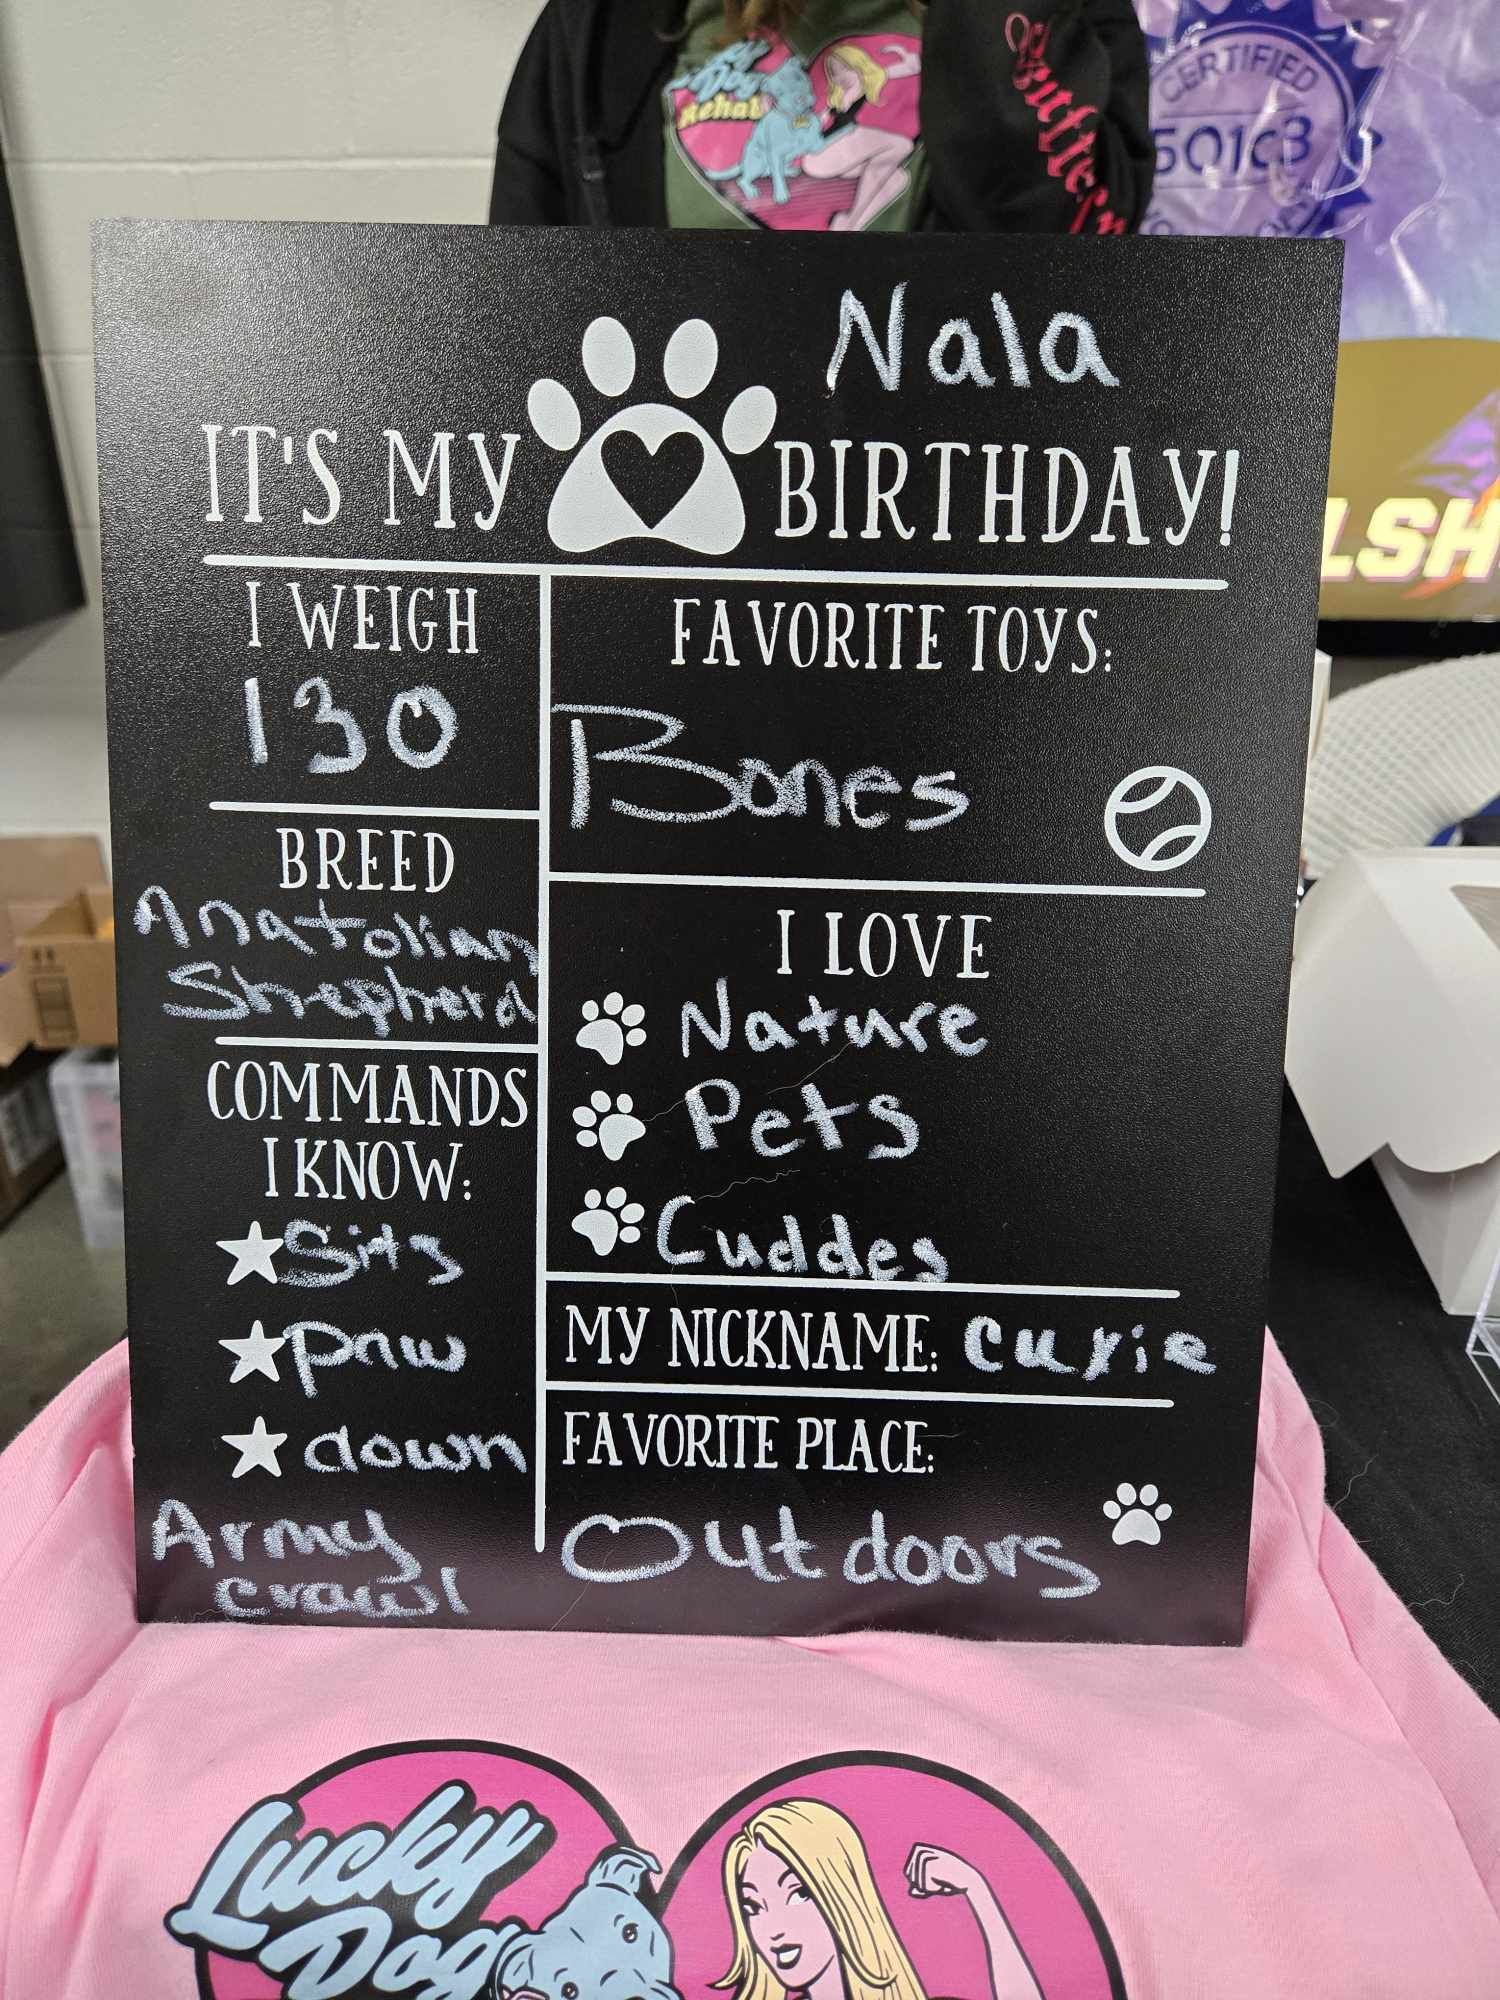 Lucky
Dog
Rehab
CERTIFIED
501c3
LSH
Nala
IT'S MY BIRTHDAY!
I WEIGH
130
BREED
Anatolian
Shepherd
COMMANDS
I KNOW:
Sits
paw
down
Army
crawl
FAVORITE TOYS:
Bones
I LOVE
Nature
Pets
Cuddes
MY NICKNAME: Curie
FAVORITE PLACE:
Outdoors
Lucky
Dog